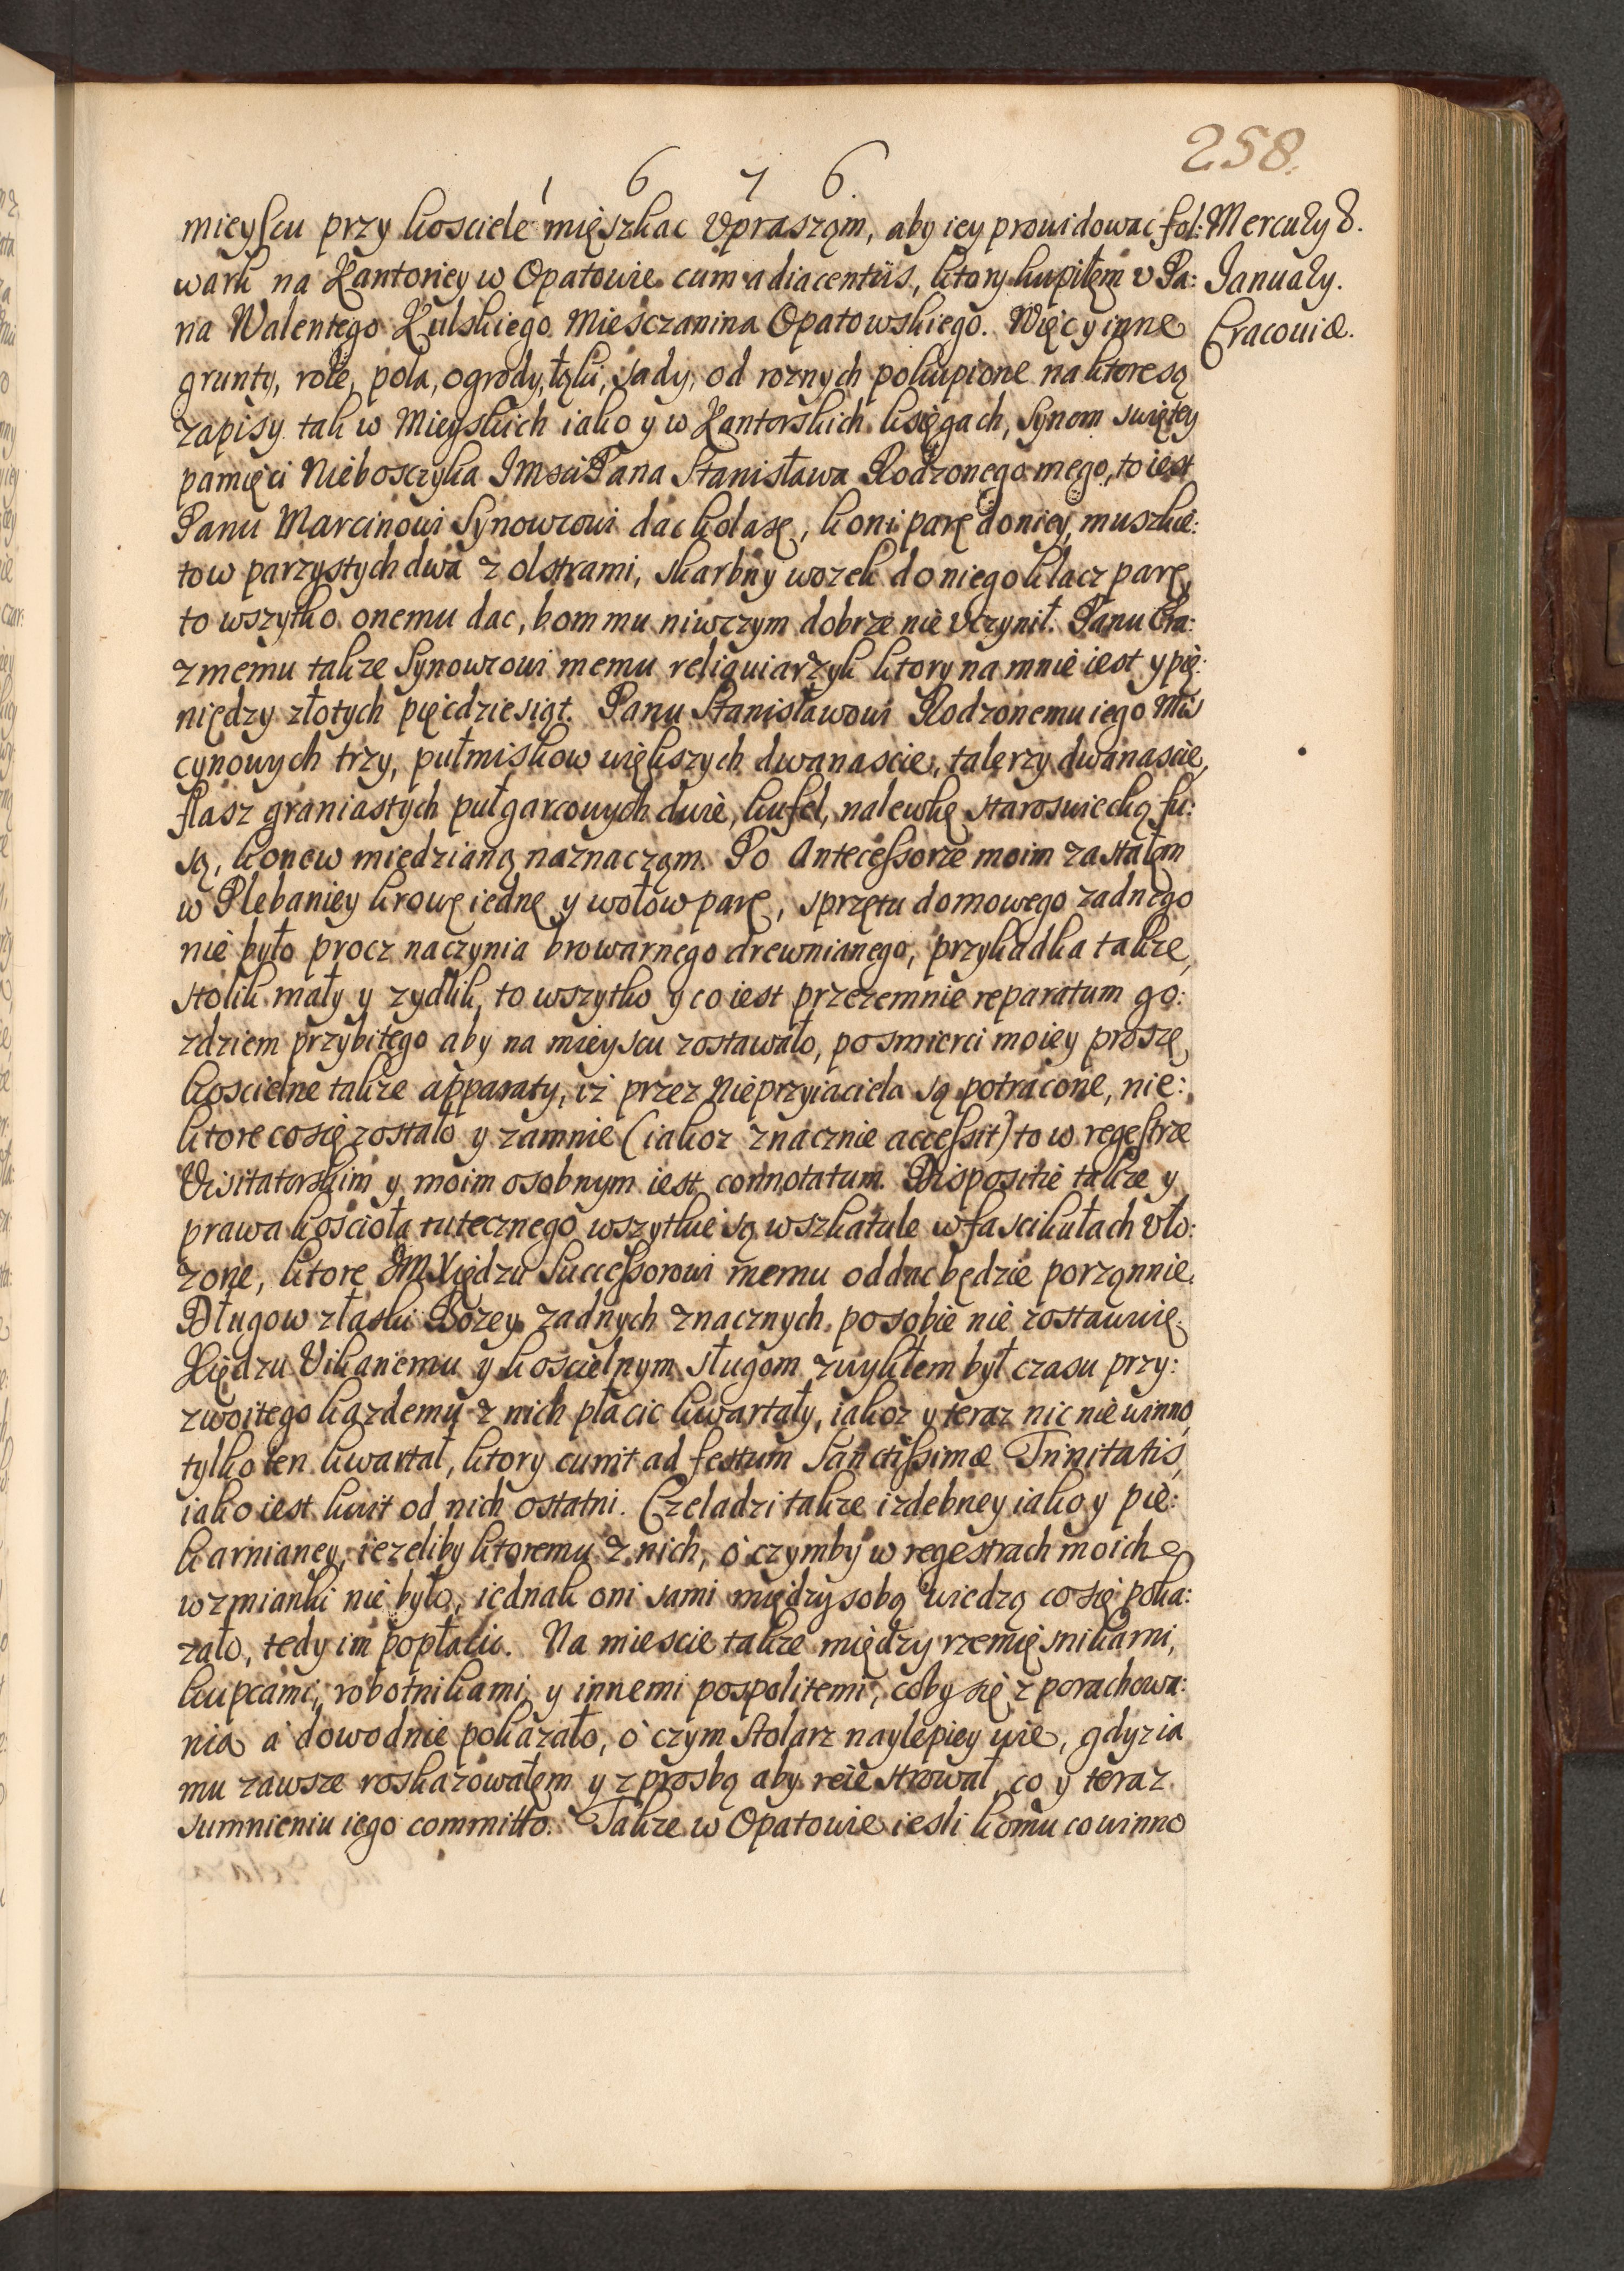 258.
1 6 7 6.
mieyscu przy kosciele mięszkac Vprasząm, aby iey prouidowac fol:
wark na Kantoriey w Opatowie cum adiacentiis, ktory kupiłem v Pa:
na Walentego Kulskiego Miesczanina Opatowskiego. Więc y inne
grunty, role, pola, ogrody, łąki, sady, od roznych pokupione na ktore są
zapisy tak w Mieyskich iako y w Kantorskich księgach, Synom swiętey
pamięci Nieboszczyka IMsci Pana Stanisława Rodzonego mego, to iest
Panu Marcinowi Synowcowi dac kolasę, koni parę do niey, muszkie:
tow parzystych dwa z olstrami, skarbny wozek do niego klacz parę,
to wszytko onemu dac, bom mu niwczym dobrze nie vczynił. Panu Era:
zmemu takze Synowcowi memu reliquiarzyk ktory na mnie iest y pię:
niędzy złotych pięcdziesiąt. Panu Stanisławowi Rodzonemu iego Mis
cynowych trzy, pułmiskow większych dwanascie, talerzy dwanascie,
flasz graniastych pułgarcowych dwie, kufel, nalewkę staroswiecką fu:
są, konew miedzianą naznacząm. Po Antecessorze moim zastałem
w Plebaniey krowę iednę y wołow parę, sprzętu domowego zadnego
nie było procz naczynia browarnego drewnianego, przykadka takze,
stolik mały y zydlik, to wszytko y co iest przezemnie reparatum go:
zdziem przybitego aby na mieyscu zostawało, po smierci moiey proszę,
koscielne takze apparaty, iż przez nieprzyiaciela są potracone, nie:
ktore co się zostało y zamnie (iakoz znacznie accessit) to w regestrze
Visitatorskim y moim osobnym iest connotatum. Dispositie takze y
prawa kościoła tutecznego wszytkie są w szkatule w fascikułach vło:
zone, ktore IM Xiędzu Successorowi memu oddac będzie porząnnie.
Długow z łaski Bozey zadnych znacznych po sobie nie zostawuię.
Xiędzu Vikaremu y koscielnym sługom zwykłem był czasu przy:
zwoitego kazdemu z nich płacic kwartały, iakoz y teraz nic nie winno,
tylko ten kwartał, ktory currit ad festum Sanctissimæ Trinitatis,
iako iest kwit od nich ostatni. Czeladzi takze izdebney iako y pie:
karnianey, iezeliby ktoremu z nich, o czymby w regestrach moich
wzmianki nie było, iednak oni sami między sobą wiedzą co się poka:
zało, tedy im popłacic. Na miescie takze między rzemięsnikami,
kupcami, robotnikami, y innemi pospolitemi, coby się z porachowa:
nia a dowodnie pokazało, o czym Stolarz naylepiey wie, gdyz ia
mu zawsze roskazowałem y z prosbą aby reiestrował, co y teraz
sumnieniu iego committo. Takze w Opatowie iesli komu co winno
Mercury 8.
January.
Cracouiæ.